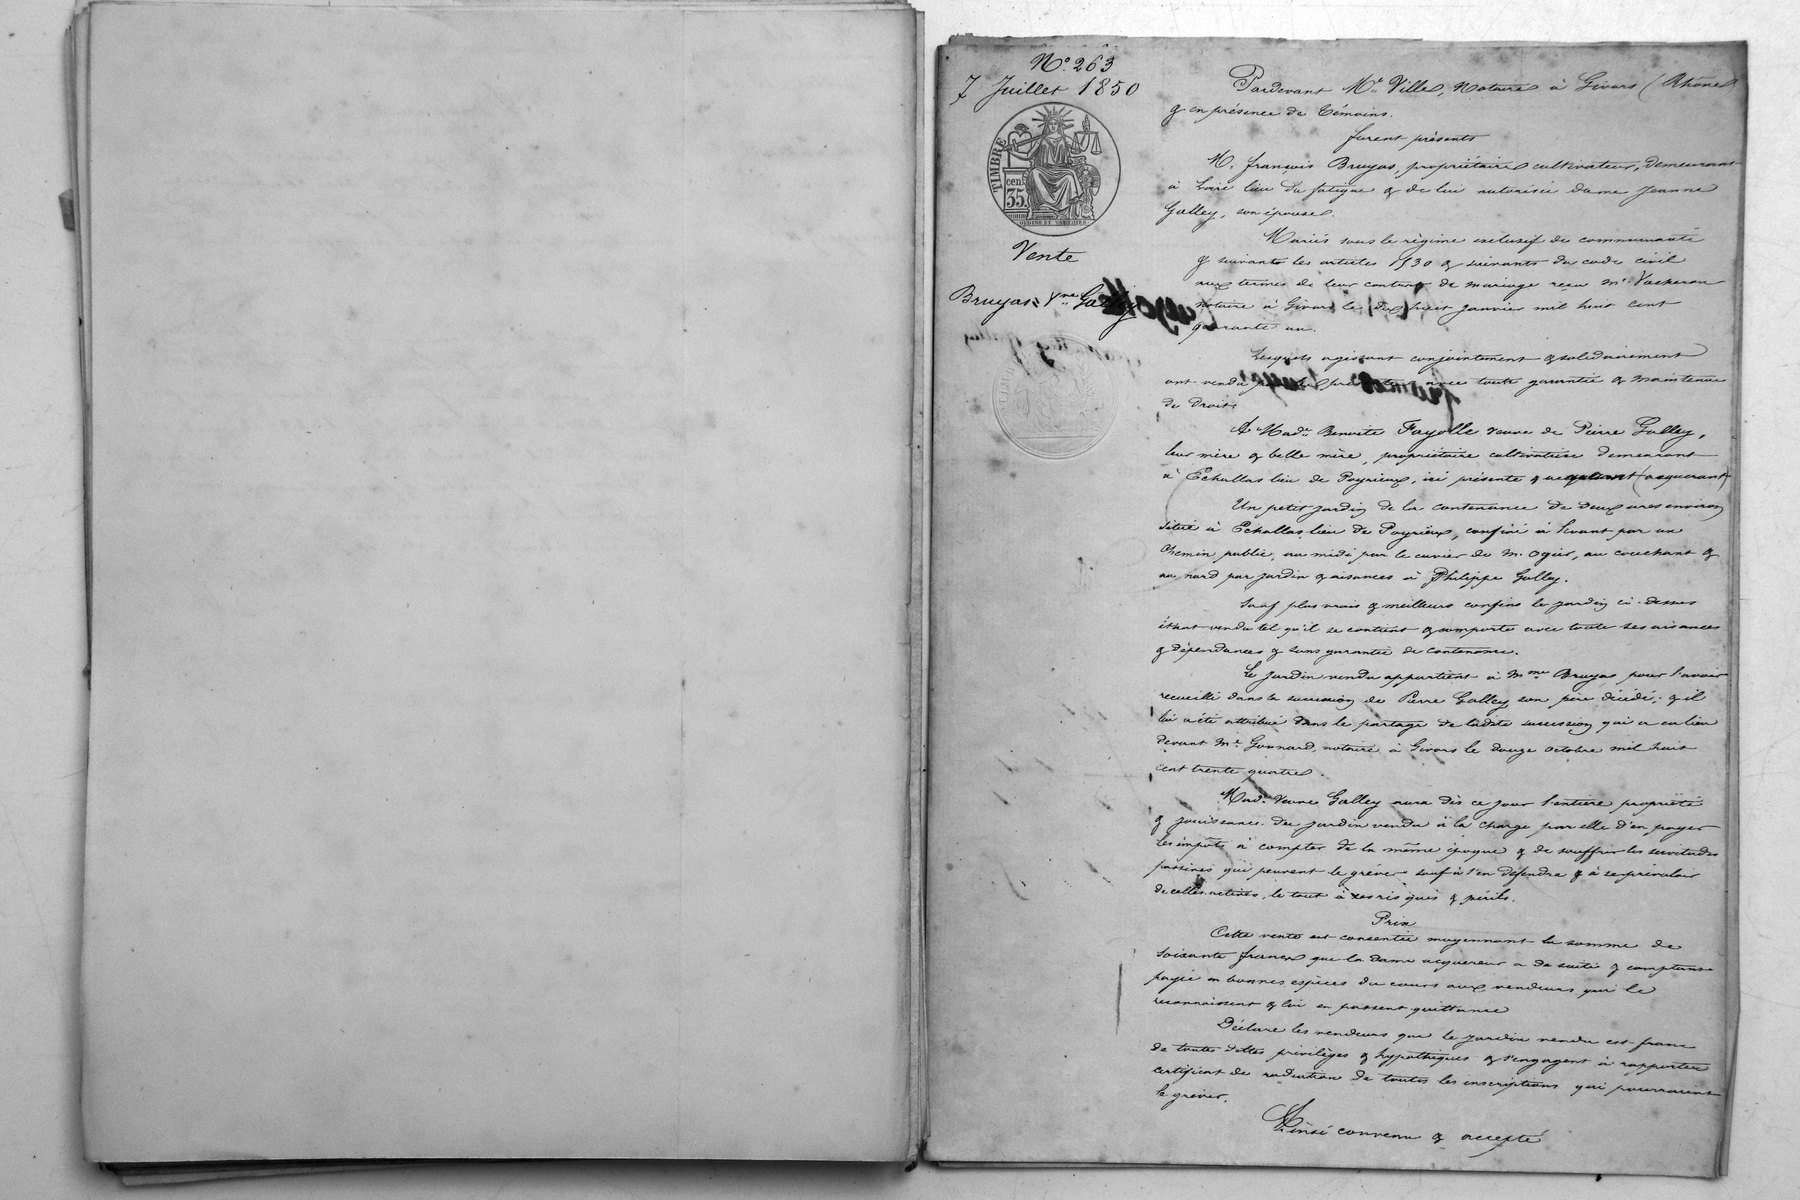 N° 263
7 Juillet 1850
TIMBRE
cen. 35.
Vente
Bruyas = Vve Galley
Pardevant Me Ville, Notaire à Givors (Rhône
& en présence de témoins.
furent présents
M. françois Bruyas, propriétaire cultivateur, demeurant
à Loire lieu du fatigue & de lui autorisée dame Jeanne
Galley, son épouse.
Mariés sous le régime exclusif de communauté
& suivants les articles 1530 & suivants du code civil
aux termes de leur contrat de mariage reçu Me Vacheron
Notaire à Givors le dix huit Janvier mil huit cent
quarante un.
Lesquels agissant conjointement & solidairement
ont vendu par les présentes avec toute garantie & maintenue
de droits
A Made Benoite Fayolle veuve de Pierre Galley,
leur mère & belle mère, propriétaire cultivatrice demeurant
à Echallas lieu de Poyrieux, ici présente & (acquerant)
Un petit jardin de la contenance de deux ares environ
situé à Echallas, lieu de Poyrieux, confiné à levant par un
Chemin public, au midi par le cuvier de M. Ogier, au couchant &
au nord par jardin & aisances à Philippe Galley.
Sauf plus vrais & meilleurs confins le jardin ci-dessus
étant vendu tel qu'il se contient & comporte avec toute ses aisances
& dépendances & sans garantie de contenance.
Le jardin vendu appartient à Mme Bruyas pour l'avoir
recueilli dans la succession de Pierre Galley son père décédé; & il
lui a été attribué dans le partage de ladite succession qui a eu lieu
devant Me Gonnard, notaire à Givors le douze octobre mil huit
cent trente quatre.
Made Veuve Galley aura dès ce jour l'entière propriété
& jouissance du jardin vendu à la charge par elle d'en payer
les impôts à compter de la même époque & de souffrir les servitudes
passives qui peuvent le gréver sauf à s'en défendre & à se prévaloir
de celles actives, le tout à ses risques & périls.
Prix
Cette vente est consentie moyennant la somme de
soixante francs que la dame acquereur a de suite & comptant
payée en bonnes espèces du cours aux vendeurs qui le
reconnaissent & lui en passent quittance
Déclare les vendeurs que le jardin vendu est franc
de toutes dettes privilèges & hypothèques & s'engagent à rapporter
certificat de radiation de toutes les inscriptions qui pourraient
le gréver.
Ainsi convenu & accepté